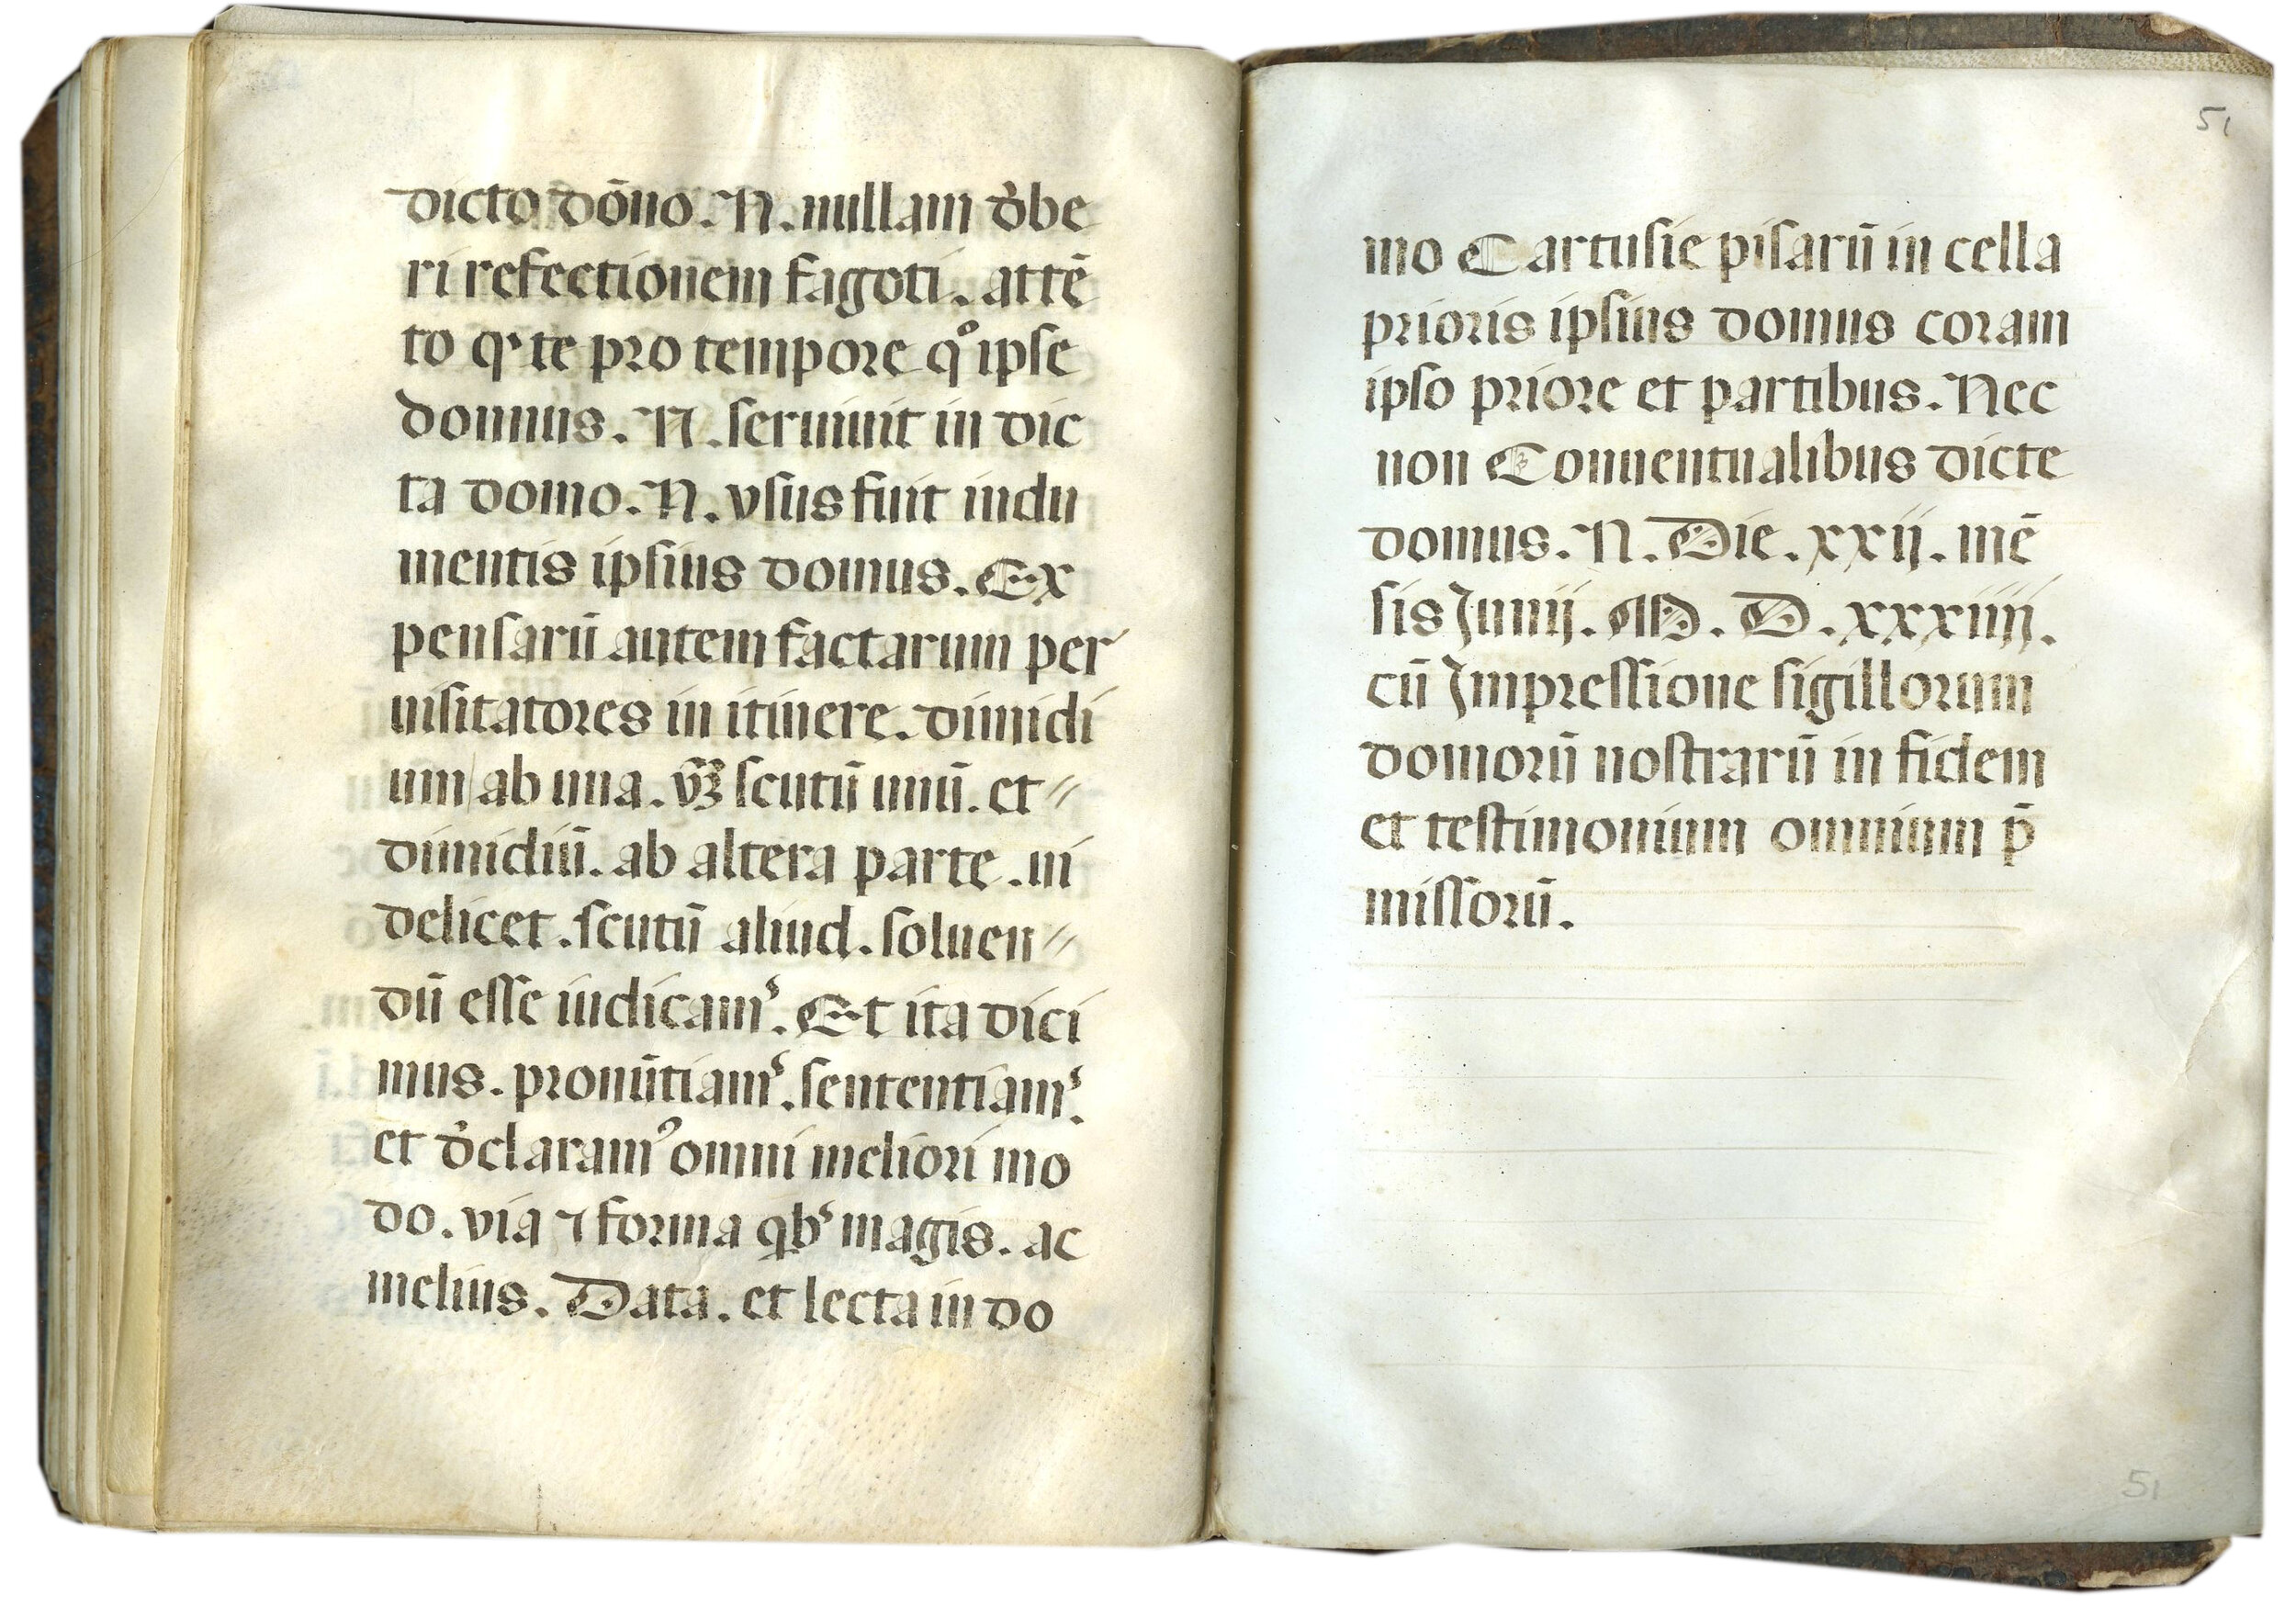 dicto dōno. N. nullam d̓be
ri refectionem fagoti. attē
to qꝛ te pro tempore q° ipse
domnus. N. seruiuit in dic
ta domo. N. vsus fuit indu
mentis ipsius domus. Ex
pensarū autem factarum per
uisitatores in itinere. dimidi
um ab una. vꝫ scutū unū. et〃
dimidiū. ab altera parte. ui
delicet. scutū aliud. soluen〃
dū esse iudicamꝰ. Et ita dici
mus. pronūtiamꝰ. sententiamꝰ.
et d̓claramꝰ omni meliori mo
do. via ⁊ forma qbꝰ magis. ac
melius. Data. et lecta in do
51
mo Cartusie pisarū in cella
prioris ipsius domus coram
ipso priore et partibus. Nec
non Conuentualibus dicte
domus. N. Die. xxij. mē
sis Junij. M. D. xxxiiij.
cū Jmpressione sigillorum
domorū nostrarū in fidem
et testimonium omnium p̄
missorū.
51